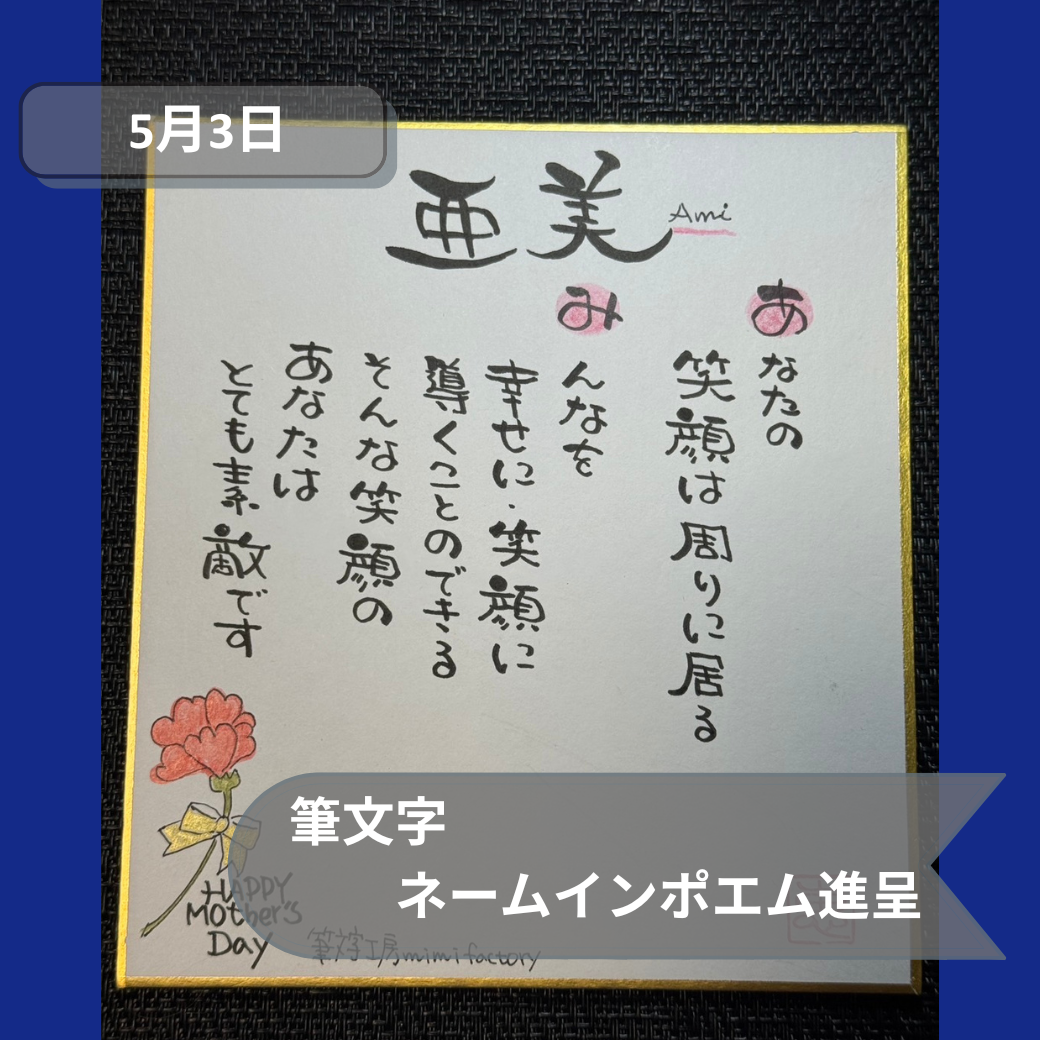 5月3日
亜美 Ami
あなたの
笑顔は周りに居る
みんなを
幸せに・笑顔に
導くことのできる
そんな笑顔の
あなたは
とても素敵です
筆文字
ネームインポエム進呈
HAPPY
MOther's
Day
筆文字工房mimifactory